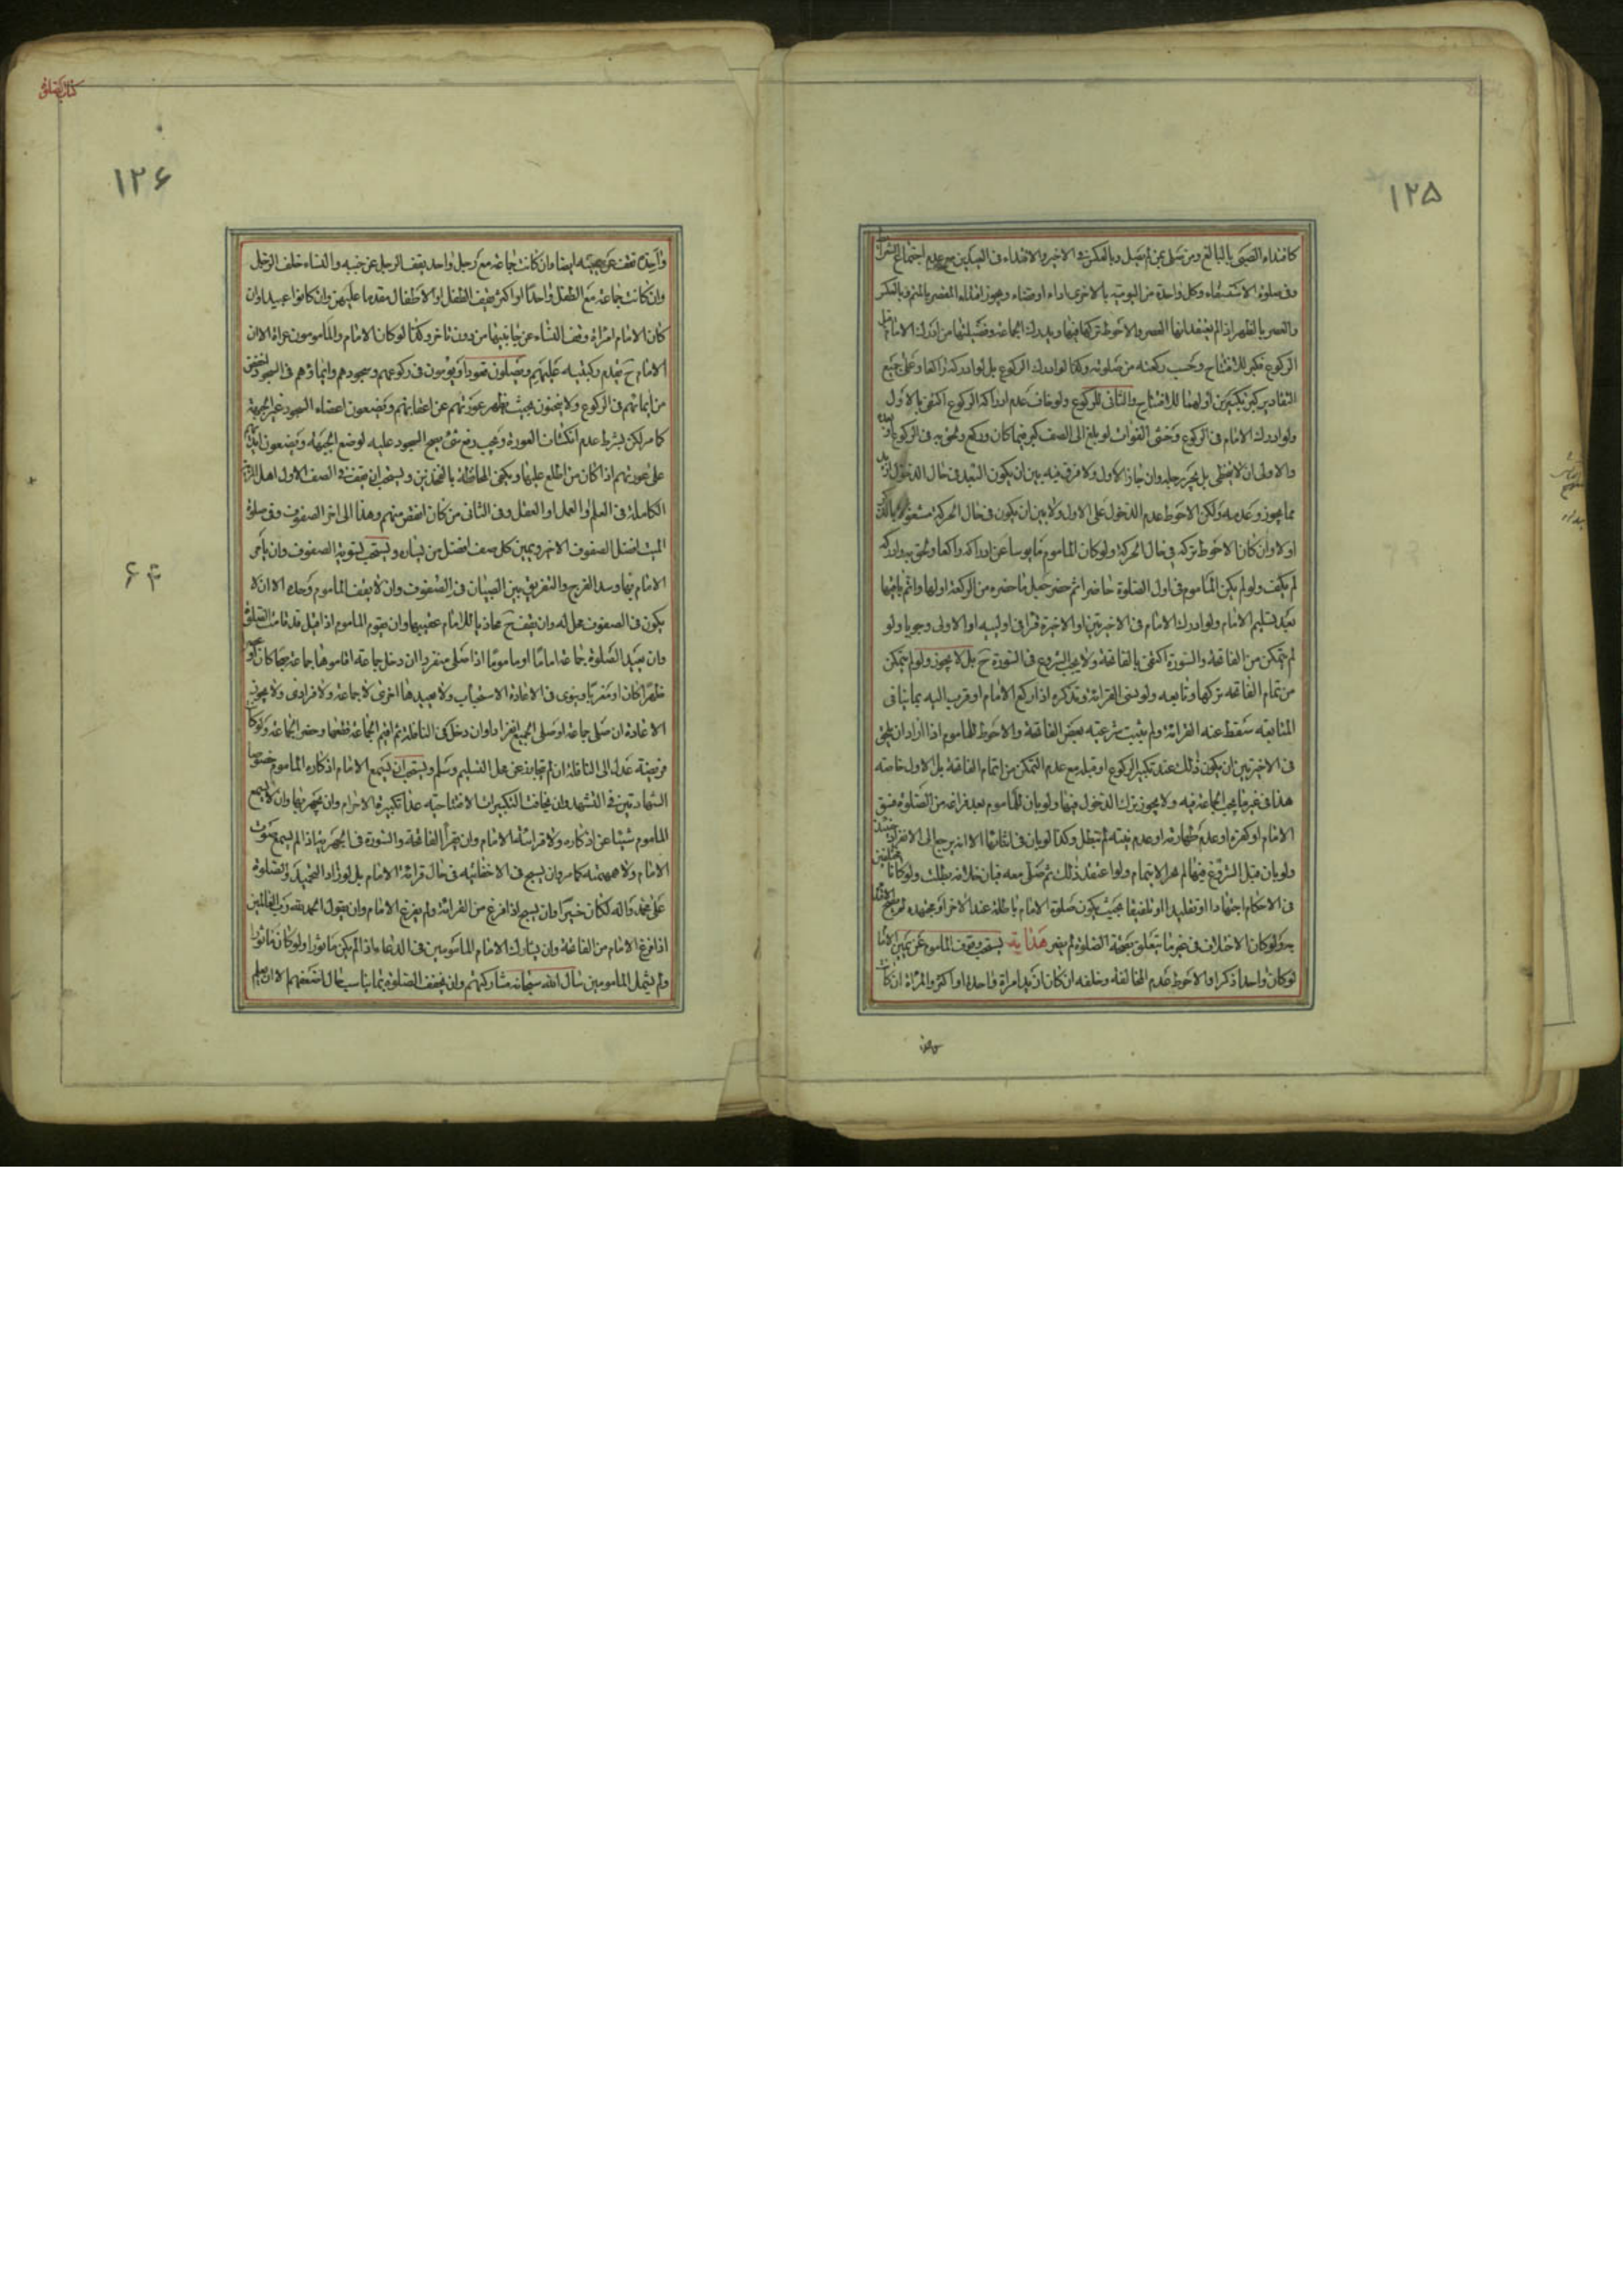 ١٢٥
كاقتداء الصبى بالبالغ ومن صلى بمن لم يصل وبالعكس فى الاخير والاقتداء فى العيدين مع عدم اجتماع الشرائط
وفى صلوة الاستسقاء وكل واحدة من اليومية بالاخرى اداء او قضاء ويجوز اقتداء المقصر بالمتم وبالعكس
والعصر بالظهر اذا لم يعتقد انها العصر والاحوط تركها فيها ويدرك الجماعة وفضيلتها من ادرك الامام قبل
الركوع فكبر للافتتاح وتحسب ركعته من صلوته وكذا لو ادرك الركوع بل لو ادركه راكعا وعلى جميع
التقادير كبر تكبيرتين اولهما للافتتاح والثانى للركوع ولو خاف عدم ادراكه الركوع اكتفى بالاول
ولو ادرك الامام فى الركوع وخشى الفوات لو بلغ الى الصف كبر فيما كان وركع ولحق به فى الركوع او بعده
والاولى ان لا يتخطى بل يجر رجليه وان جاز الاول ولا فرق فيه بين ان يكون البعد فى حال الدخول
مما يجوز وعدمه ولكن الاحوط عدم الدخول على الاول ولا بين ان يكون فى حال الحركة مشغولا بالذكر
او لا وان كان الاحوط تركه فى حال الحركة ولو كان الماموم مايوسا عن ادراكه راكعا ولحق به وادركه
لم يكف ولو لم يكن الماموم فى اول الصلوة حاضرا ثم حضر جعل ما حضره من الركعة اولها واتم باقيها
بعد تسليم الامام ولو ادرك الامام فى الاخيرتين او الاخيرة قرا فى اولييه او الاولى وجوبا ولو
لم يتمكن من الفاتحة والسورة اكتفى بالفاتحة ولا يجب الشروع فى السورة ح بل لا يجوز ولو لم يتمكن
من تمام الفاتحة تركها وتابعه ولو نسى القرائة وتذكره اذا ركع الامام او قرب اليه بما ينافى
المتابعة سقط عنه القرائة ولم يثبت شرعية بعض الفاتحة والاحوط للماموم اذا اراد ان يلحق
فى الاخيرتين ان يكون ذلك عند تكبير الركوع او قبله مع عدم التمكن من اتمام الفاتحة بل الاول خاصة
هذا فى غير ما يجب الجماعة فيه ولا يجوز بترك الدخول فيها ولو بان للماموم بعد فراغه من الصلوة فسق
الامام او كفره او عدم طهارته او عدم نيته لم تبطل وكذا لو بان فى اثنائها الا انه يرجع الى الانفراد حينئذ
ولو بان قبل الشروع فيها لم يجز الايتمام ولو اعتقد ذلك ثم صلى معه فبان خلافه بطلت ولو كانا مختلفين
فى الاحكام اجتهادا او تقليدا او تلفيقا بحيث يكون صلوة الامام باطلة عند الاخر او مجتهده لم يصح الاقتداء
به ولو كان الاختلاف فى غير ما يتعلق بصحة الصلوة لم يضر هداية يستحب وقوف الماموم عن يمين الامام
لو كان واحدا ذكرا والاحوط عدم المخالفة وخلفه ان كان ازيد او امراة واحدة او اكثر والمراة ان كانت
كتاب الصلوة
١٢۶
واحدة تقف عن جنبه ايضا وان كانت جماعة مع رجل واحد يقف الرجل عن جنبه والنساء خلف الرجل
وان كانت جماعة مع الطفل واحدا او اكثر يقف الطفل او الاطفال مقدما عليهن وان كانوا عبيدا وان
كان الامام امراة وقف النساء عن جانبيها من دون تاخر وكذا لو كان الامام والمامومون عراة الا ان
الامام ح يتقدم بركبتيه عليهم ويصلون قعودا ويؤمون فى ركوعهم وسجودهم وايماؤهم فى السجود اخفض
من ايمائهم فى الركوع ولا ينحنون بحيث تظهر عورتهم عن اعقابهم ويضعون اعضاء السجود غير الجبهة
كما مر لكن بشرط عدم انكشاف العورة ويجب رفع شئ يصح السجود عليه لوضع الجبهة ويضعون ايديهم
على عورتهم اذا كان من اطلع عليها ويكفى المحافظة بالفخذين ويستحب ان يقف فى الصف الاول اهل المزية
الكاملة فى العلم او العمل او العقل وفى الثانى من كان انقص منهم وهكذا الى اخر الصفوف وفى صلوة
الميت افضل الصفوف الاخر ويمين كل صف افضل من يساره ويستحب تسوية الصفوف وان يامر
الامام بها وسد الفرج والتفريق بين الصبيان فى الصفوف وان لا يقف الماموم وحده الا ان لا
۶۳
يكون فى الصفوف محل له وان يقف ح محاذيا للامام عقيبها وان يقوم الماموم اذا قيل قد قامت الصلوة
وان يعيد الصلوة جماعة اماما او ماموما اذا صلى منفردا ان دخل جماعة اقاموها جماعة صبحا كان او
ظهرا كان او مغربا وينوى فى الاعادة الاستحباب ولا يعيدها اخرى لا جماعة ولا فرادى ولا يجوز
الاعادة ان صلى جماعة او صلى الجميع انفرادا وان دخل فى النافلة ثم اقيم الجماعة قطعها وحضر الجماعة ولو كان
فريضة عدل الى النافلة ان لم يتجاوز عن محل التسليم وسلم ويستحب ان يسمع الامام اذكاره الماموم خصوصا
الشهادتين فى التشهد وان يخافت التكبيرات الافتتاحية عدا تكبيرة الاحرام وان يجهر بها وان لا يسمع
الماموم شيئا عن اذكاره ولا قرائته الامام وان يقرأ الفاتحة والسورة فى الجهرية اذا لم يسمع صوت
الامام ولا همهمته كما مر وان يسبح فى الاخفاتية فى حال قرائة الامام بل لو زاد التحميد والصلوة
على محمد واله لكان خيرا وان يسبح اذا فرغ من القرائة ولم يفرغ الامام وان يقول الحمد لله رب العالمين
اذا فرغ الامام من الفاتحة وان يشارك الامام المامومين فى الدعاء اذا لم يكن ماثورا ولو كان ماثورا
ولم يشمل المامومين سأل الله سبحانه مشاركتهم وان يخفف الصلوة بما يناسب حال اضعفهم الا ان يعلم